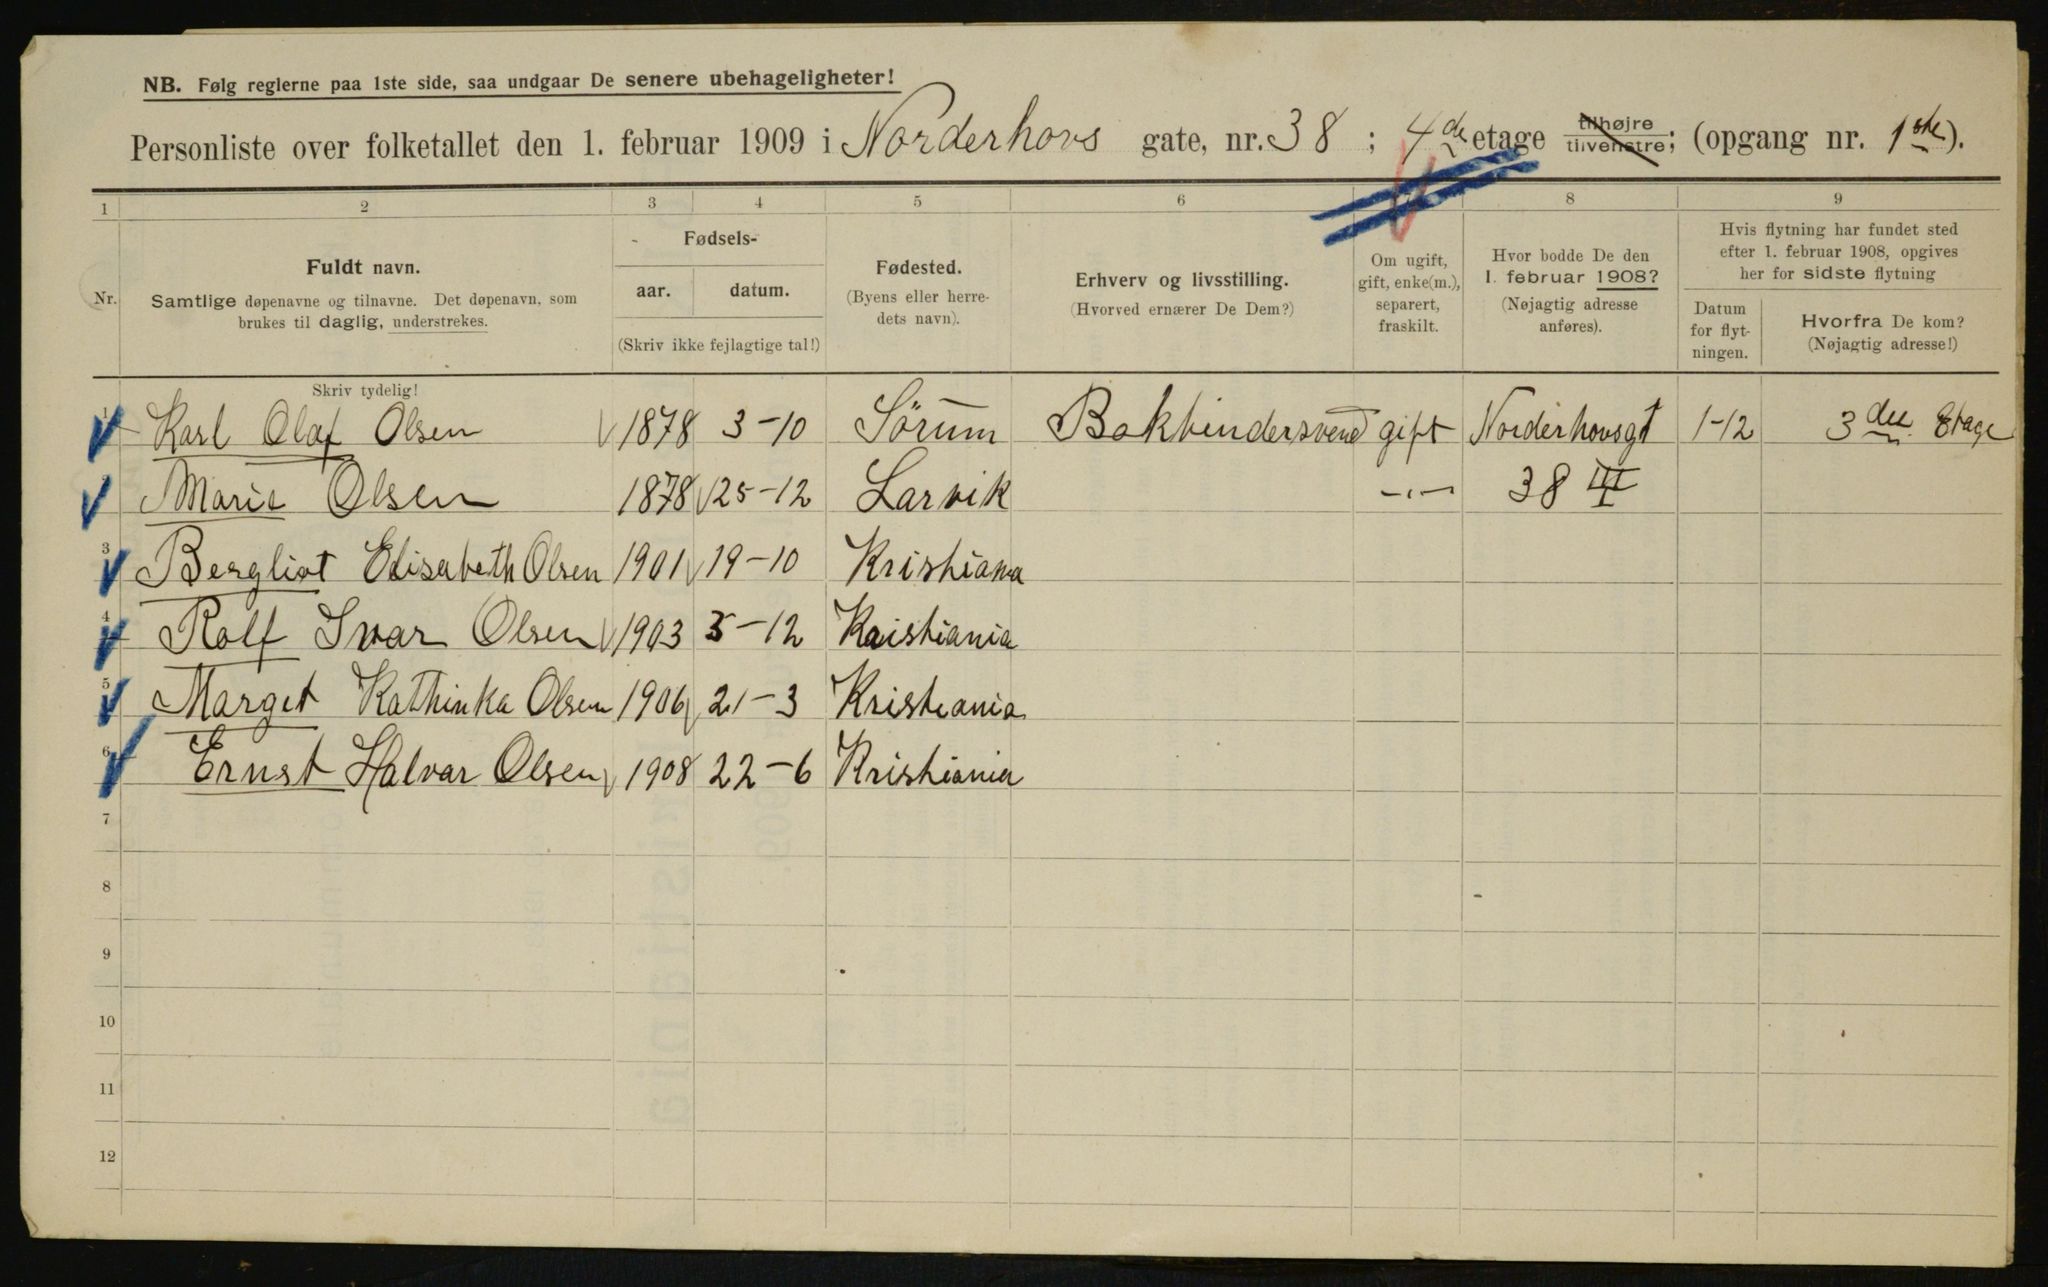 NB. Følg reglerne paa 1ste side, saa undgaar De senere ubehageligheter!
Personliste over folketallet den 1. februar 1909 i Norderhovs gate, nr. 38 ; 4de etage tilhøjre tilvenstre; (opgang nr. 1ste).
1 2 3 4 5 6 8 9
Nr. Fuldt navn. Samtlige døpenavne og tilnavne. Det døpenavn, som brukes til daglig, understrekes.
Fødsels- aar. datum. (Skriv ikke fejlagtige tal!)
Fødested. (Byens eller herredets navn).
Erhverv og livsstilling. (Hvorved ernærer De Dem?)
Om ugift, gift, enke(m.), separert, fraskilt.
Hvor bodde De den 1. februar 1908? (Nøjagtig adresse anføres).
Hvis flytning har fundet sted efter 1. februar 1908, opgives her for sidste flytning
Datum for flytningen. Hvorfra De kom? (Nøjagtig adresse!)
Skriv tydelig!
1 Karl Olaf Olsen 1878 3-10 Sörum Bokbindersvend gift Norderhovsgt 1-12 3die Etage
Marie Olsen 1878 25-12 Larvik -"- 38 III
3 Bergliot Elisabeth Olsen 1901 19-10 Kristiania
4 Rolf Ivar Olsen 1903 5-12 Kristiania
5 Marget Kathinka Olsen 1906 21-3 Kristiania
6 Ernst Halvar Olsen 1908 22-6 Kristiania
7
8
9
10
11
12